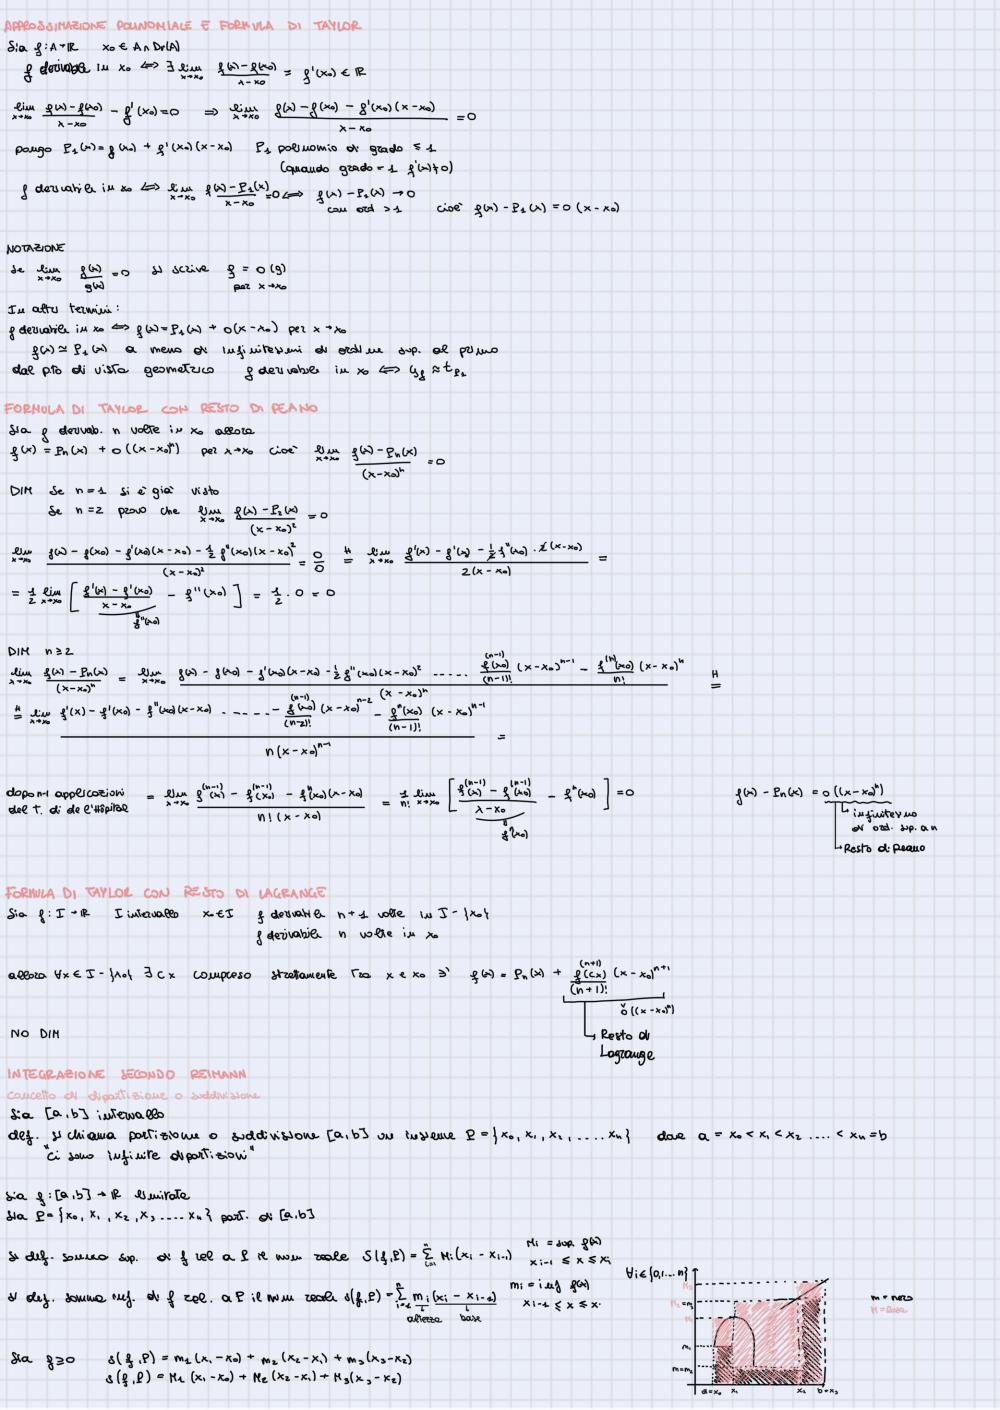 APPROSSIMAZIONE POLINOMIALE E FORMULA DI TAYLOR
Sia f: A→ℝ x₀ ∈ A∩Dr(A)
f derivabile in x₀ ⟺ ∃ lim x→x₀ (f(x)-f(x₀))/(x-x₀) = f'(x₀) ∈ ℝ
lim x→x₀ (f(x)-f(x₀))/(x-x₀) - f'(x₀) = 0 ⟹ lim x→x₀ (f(x)-f(x₀)-f'(x₀)(x-x₀))/(x-x₀) = 0
pongo P₁(x) = f(x₀) + f'(x₀)(x-x₀) P₁ polinomio di grado ≤ 1
(quando grado = 1 f'(x)≠0)
f derivabile in x₀ ⟺ lim x→x₀ (f(x)-P₁(x))/(x-x₀) = 0 ⟺ f(x) - P₁(x) → 0
con ord > 1 cioè f(x) - P₁(x) = o(x-x₀)
NOTAZIONE
Se lim x→x₀ f(x)/g(x) = 0 si scrive f = o(g)
per x→x₀
In altri termini:
f derivabile in x₀ ⟺ f(x) = P₁(x) + o(x-x₀) per x→x₀
f(x) ≃ P₁(x) a meno di infinitesimi di ordine sup. al primo
dal p.to di vista geometrico f derivabile in x₀ ⟺ G_f ≈ t_P₁
FORMULA DI TAYLOR CON RESTO DI PEANO
Sia f derivab. n volte in x₀ allora
f(x) = Pn(x) + o((x-x₀)ⁿ) per x→x₀ cioè lim x→x₀ (f(x)-Pn(x))/(x-x₀)ⁿ = 0
DIM Se n=1 si è già visto
Se n=2 provo che lim x→x₀ (f(x)-P₂(x))/(x-x₀)² = 0
lim x→x₀ (f(x)-f(x₀)-f'(x₀)(x-x₀)-½f''(x₀)(x-x₀)²)/(x-x₀)² = 0/0 =ᴴ lim x→x₀ (f'(x)-f'(x₀)-½f''(x₀)·2(x-x₀))/2(x-x₀) =
= ½ lim x→x₀ [(f'(x)-f'(x₀))/(x-x₀) - f''(x₀)] = ½ · 0 = 0
f''(x₀)
DIM n≥2
lim x→x₀ (f(x)-Pn(x))/(x-x₀)ⁿ = lim x→x₀ (f(x)-f(x₀)-f'(x₀)(x-x₀)-½f''(x₀)(x-x₀)² ..... f⁽ⁿ⁻¹⁾(x₀)/(n-1)! (x-x₀)ⁿ⁻¹ - f⁽ⁿ⁾(x₀)/n! (x-x₀)ⁿ)/(x-x₀)ⁿ =ᴴ
=ᴴ lim x→x₀ (f'(x)-f'(x₀)-f''(x₀)(x-x₀) ..... - f⁽ⁿ⁻¹⁾(x₀)/(n-2)! (x-x₀)ⁿ⁻² - fⁿ(x₀)/(n-1)! (x-x₀)ⁿ⁻¹)/n(x-x₀)ⁿ⁻¹ =
dopo n-1 applicazioni
del T. di de l'Hôpital
= lim x→x₀ (f⁽ⁿ⁻¹⁾(x) - f⁽ⁿ⁻¹⁾(x₀) - fⁿ(x₀)(x-x₀))/n!(x-x₀) = 1/n! lim x→x₀ [(f⁽ⁿ⁻¹⁾(x) - f⁽ⁿ⁻¹⁾(x₀))/(x-x₀) - fⁿ(x₀)] = 0
fⁿ(x₀)
f(x) - Pn(x) = o((x-x₀)ⁿ)
infinitesimo
di ord. sup. a n
Resto di Peano
FORMULA DI TAYLOR CON RESTO DI LAGRANGE
Sia f: I→ℝ I intervallo x₀∈I f derivabile n+1 volte in I-{x₀}
f derivabile n volte in x₀
allora ∀x∈I-{x₀} ∃ cx compreso strettamente tra x e x₀ ∋' f(x) = Pn(x) + f⁽ⁿ⁺¹⁾(cx)/(n+1)! (x-x₀)ⁿ⁺¹
o((x-x₀)ⁿ)
Resto di
Lagrange
NO DIM
INTEGRAZIONE SECONDO REIMANN
Concetto di dipartizione o suddivisione
Sia [a,b] intervallo
def. si chiama partizione o suddivisione [a,b] un insieme P={x₀, x₁, x₂, .... xn} dove a = x₀ < x₁ < x₂ .... < xn = b
"ci sono infinite dipartizioni"
Sia f: [a,b] → ℝ limitata
Sia P={x₀, x₁, x₂, x₃ .... xn} part. di [a,b]
si def. somma sup. di f rel a P il num reale S(f,P) = Σ Mi(xi - xi-1) Mi = sup f(x)
xi-1 ≤ x ≤ xi
∀i∈{0,1...n}
si def. somma inf. di f rel. a P il num reale s(f,P) = Σ mi(xi - xi-1) mi = inf f(x)
xi-1 ≤ x ≤ xi
altezza base
m = nero
M = Rosa
m₁
a=x₀ x₁ x₂ b=x₃
Sia f≥0 s(f,P) = m₁(x₁-x₀) + m₂(x₂-x₁) + m₃(x₃-x₂)
S(f,P) = M₁(x₁-x₀) + M₂(x₂-x₁) + M₃(x₃-x₂)